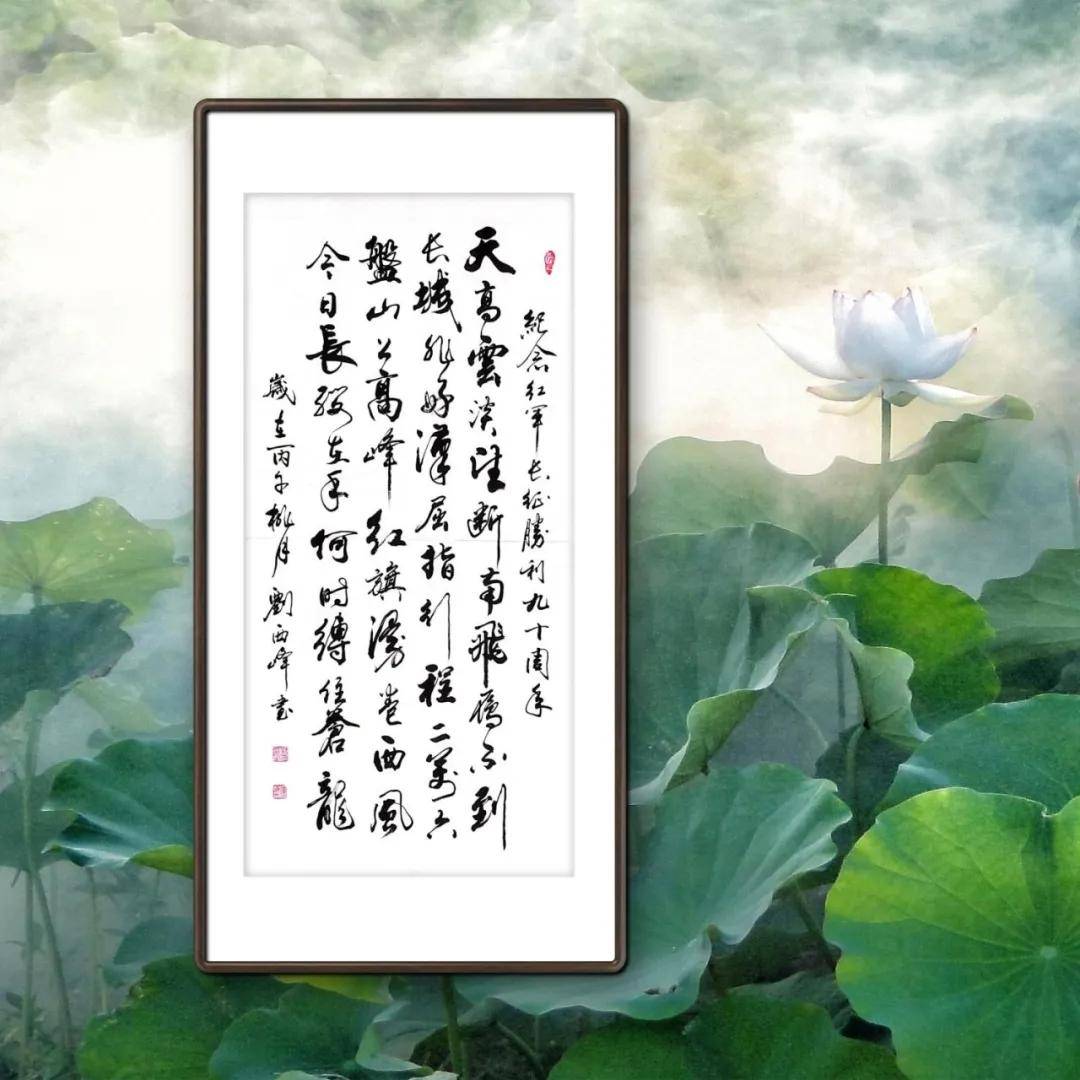 紀念红軍长征勝利九十周年
天高雲淡望断南飛雁不到
长城非好漢屈指行程二萬六
盤山上高峰红旗漫卷西風
今日長缨在手何时縛住蒼龍
歲在丙午桃月劉西峰書